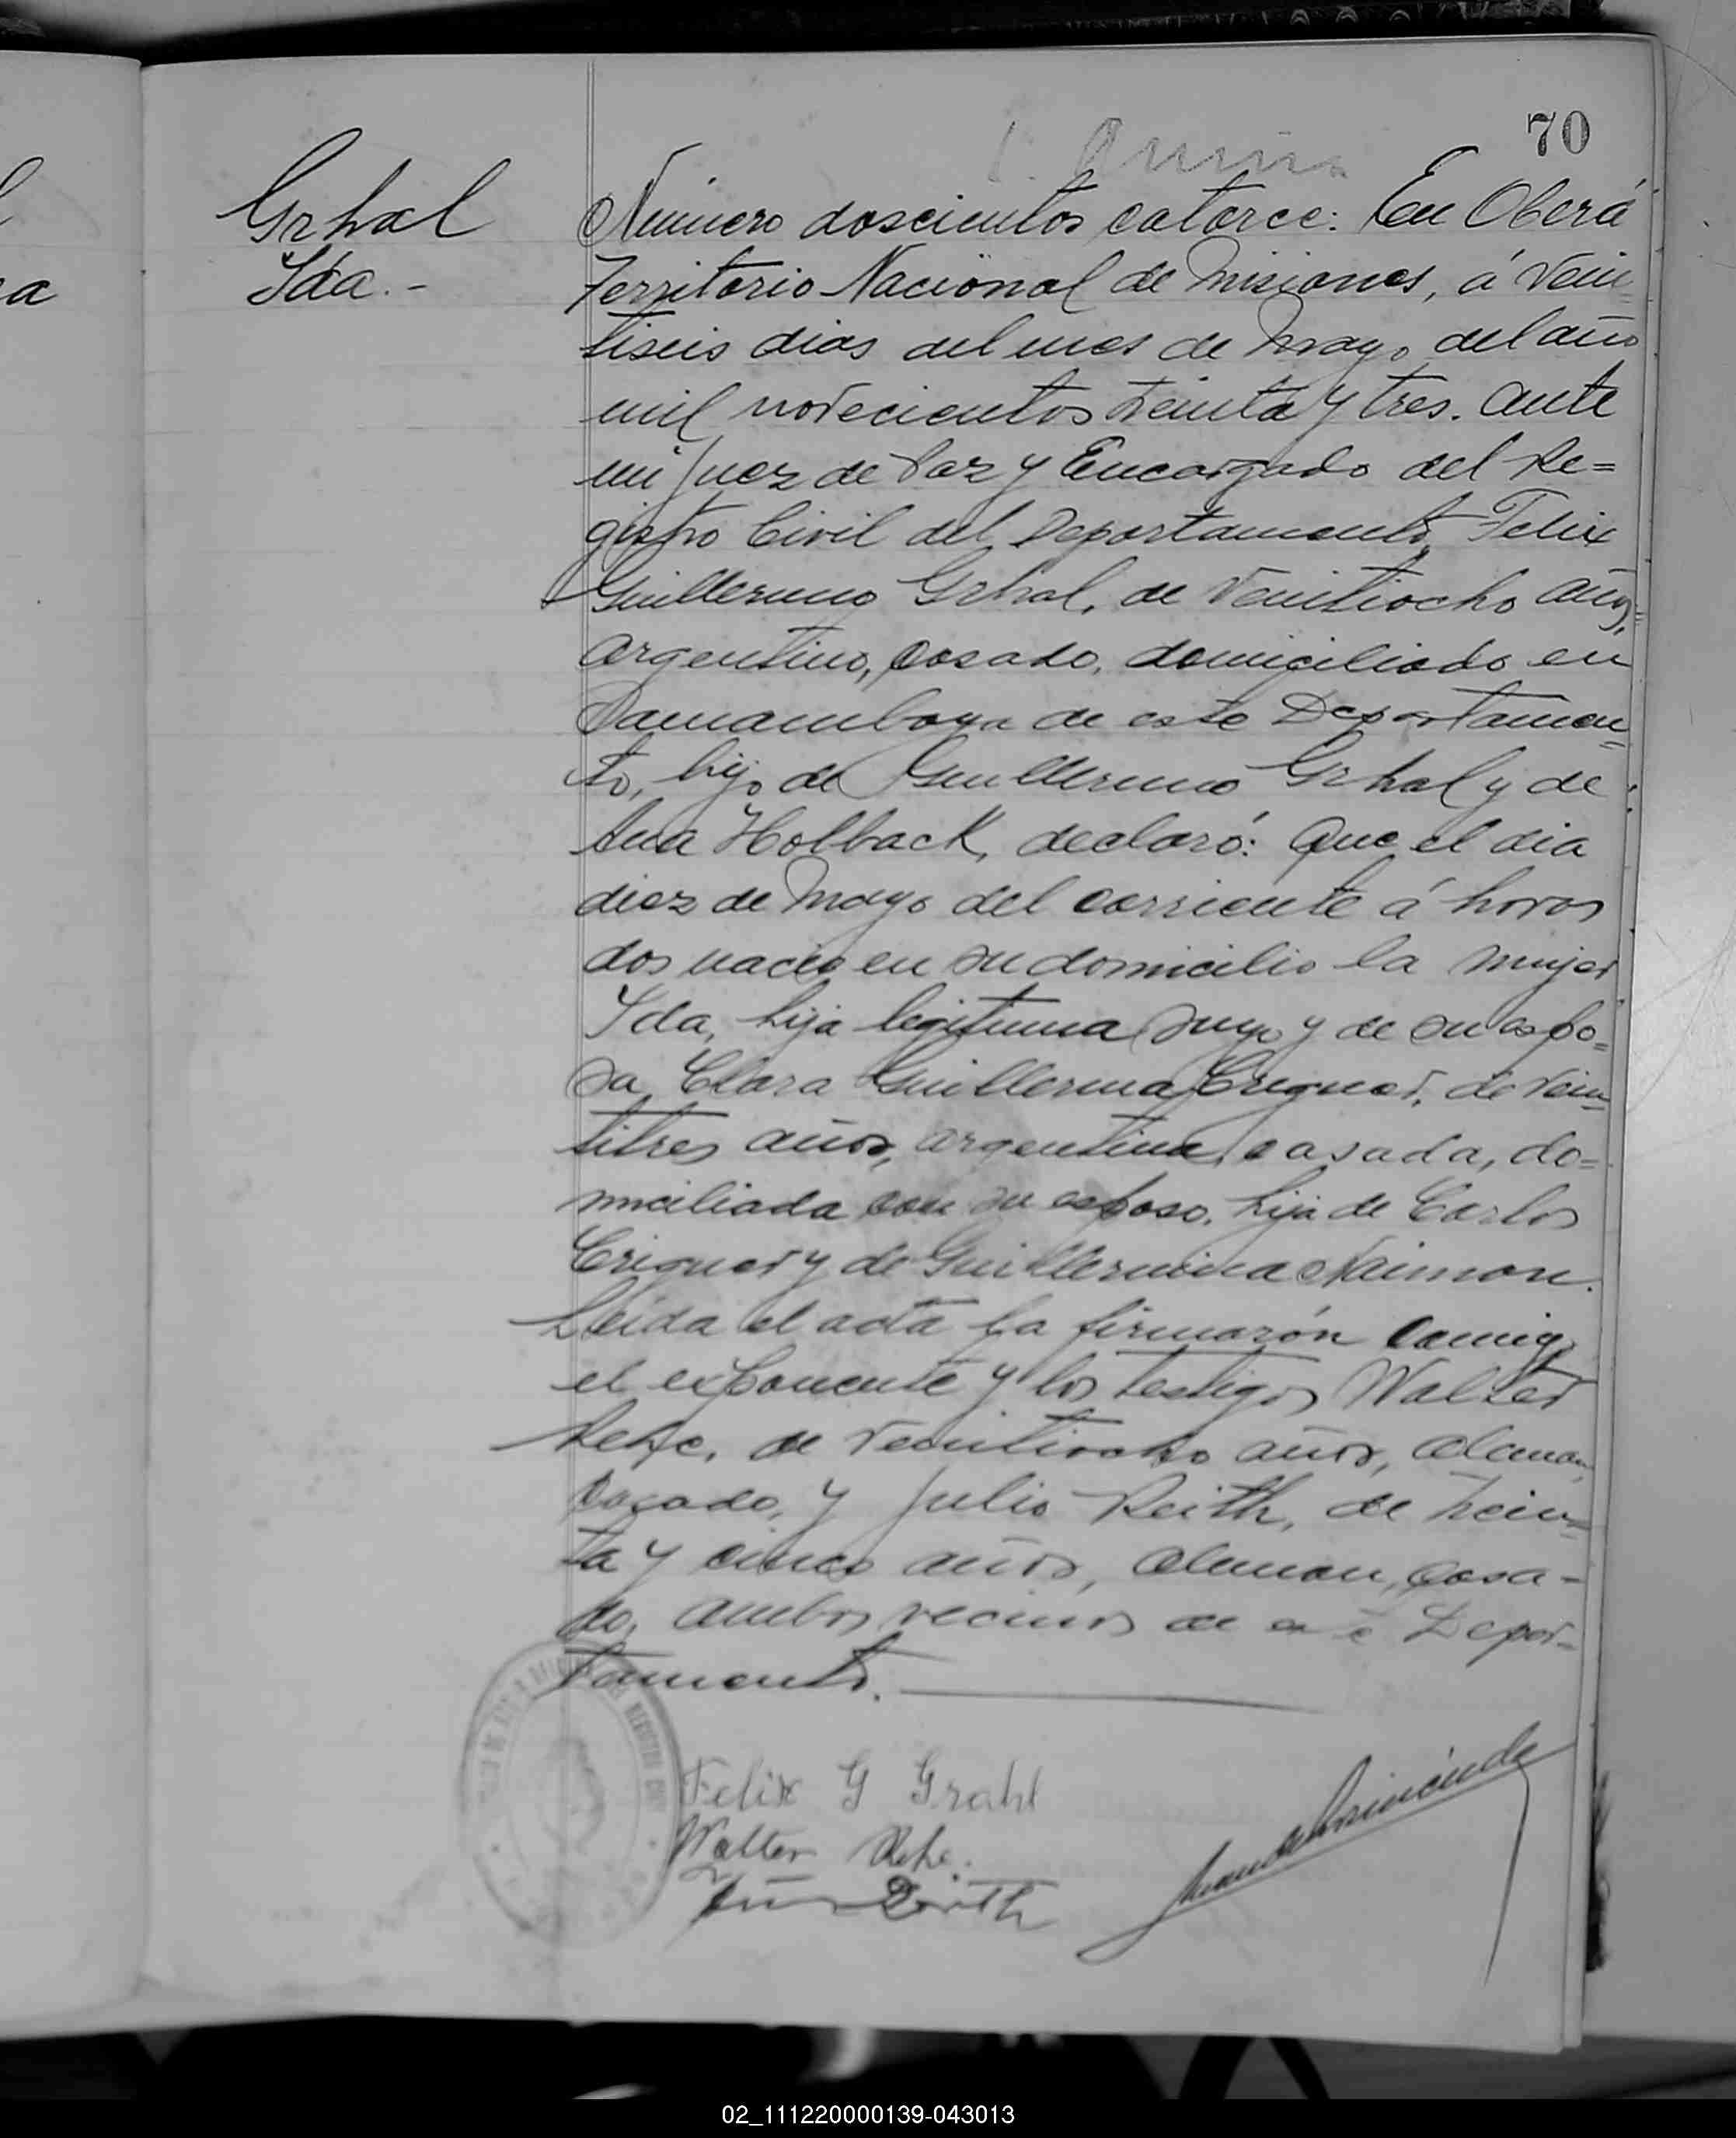 70
Grhal
Ida.-
Número doscientos catorce: En Oberá
Territorio Nacional de Misiones, á Vein=
tiseis dias del mes de Mayo del año
mil novecientos treinta y tres. Ante
mi Juez de Paz y Encargado del Re=
gistro Civil del Departamento, Felix
Guillermo Grhal, de Veintiocho años,
Argentino, casado, domiciliado en
de este Departamen=
to, hijo de Guillermo Grhal y de
Ana Holback, declaró: Que el dia
diez de Mayo del corriente á horas
dos nació en su domicilio la mujer
Ida, hija legitima suya y de su espo=
sa Clara Guillerma de Vein=
titres años, argentina, casada, do=
miciliada con su esposo, hija de Carlos
y de Guillermina
Leida el acta la firmarón conmigo
el exponente y los testigos Walter
Rehe, de Veintiocho años, Aleman,
casado, y Julio Reith, de trein=
ta y cinco años, Aleman, casa-
do, ambos vecinos de este Depar=
tamento.
Felix G Grahl
Walter Rehe.
Reith
02_111220000139-043013